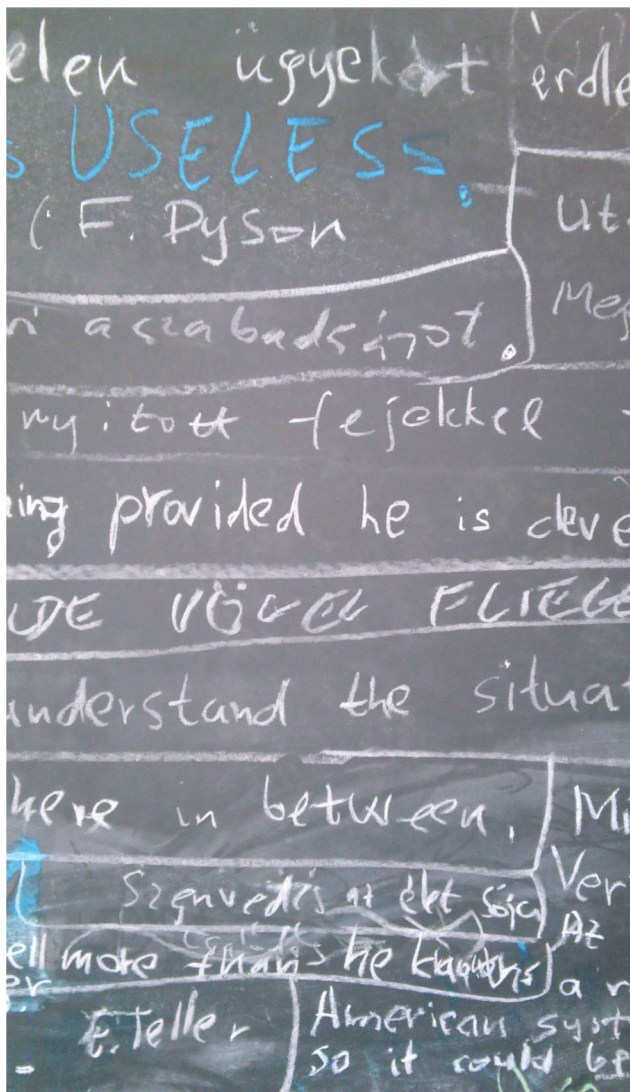 elen ügyeket
erdle
s USELESS.
(F. Dyson
Ut
n a szabadságot.
Meg
nyitott fejekkel -
ing provided he is cleve
LDE VÖGEL FLIEGE
understand the situat
here in between.
Mi
Szenvedés az élet sója
Ver
Az
ell more than he knows
er
a n
E. Teller
American syst
so it could be